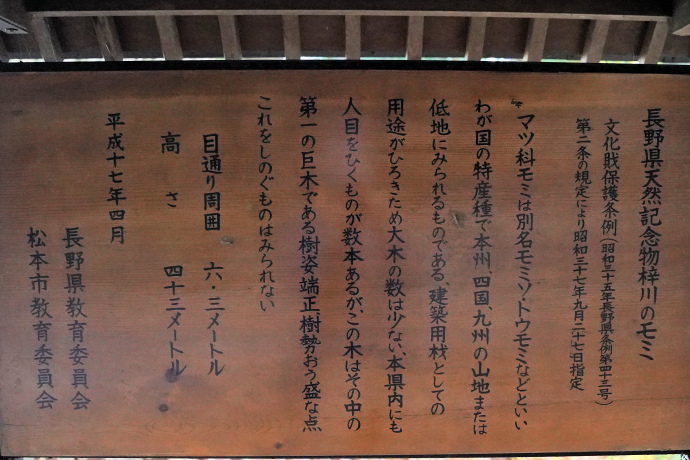 長野県天然記念物梓川のモミ
文化財保護条例(昭和三十五年長野県条例第四十三号)
第二条の規定により昭和三十七年九月二十七日指定
マツ科モミは別名モミソ・トウモミなどといい
わが国の特産種で本州、四国、九州の山地または
低地にみられるものである、建築用材としての
用途がひろきため大木の数は少ない、本県内にも
人目をひくものが数本あるが、この木はその中の
第一の巨木である樹姿端正、樹勢おう盛な点
これをしのぐものはみられない
目通り周囲 六・三メートル
高さ 四十三メートル
平成十七年四月
長野県教育委員会
松本市教育委員会